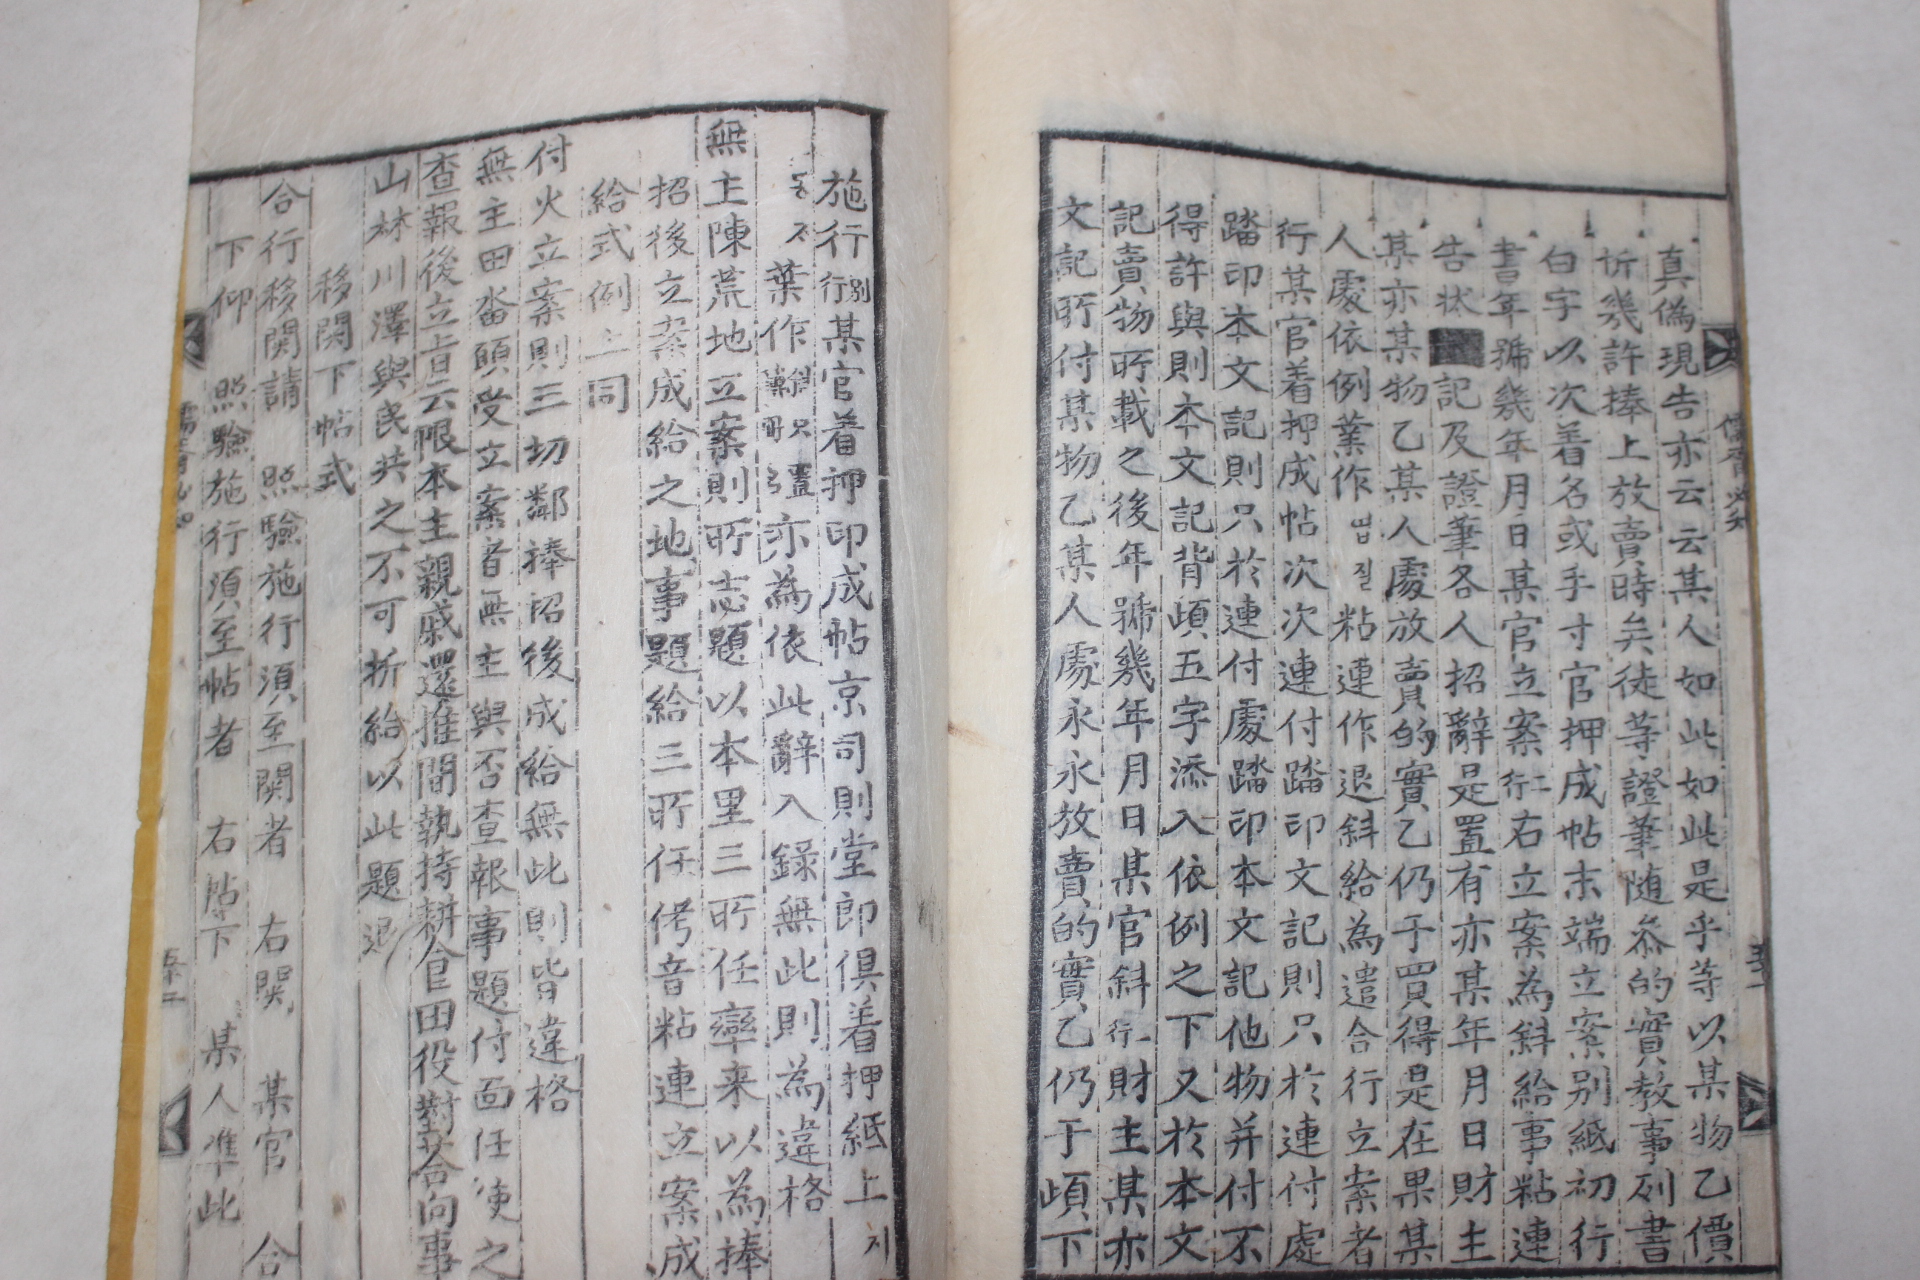 真偽現告亦云云某人如此如此是乎等以某物乙價
折幾許捧上放賣時矣徒等證筆隨參的實教事列書
白字以次着名或手寸官押成帖末端立案別紙初行
書年號幾年月日某官立案行二右立案為斜給事粘連
告狀 記及證筆各人招辭是置有亦某年月日財主
某亦某物乙某人處放賣的實乙仍于買得是在果某
人處依例業作 연질 粘連作退斜給為遣合行立案者
行某官着押成帖次次連付踏印文記則只於連付處
踏印本文記則只於連付處踏印本文記他物并付不
得許與則本文記背頉五字添入依例之下又於本文
記賣物所載之後年號幾年月日某官斜行財主某亦
文記所付某物乙某人處永永放賣的實乙仍于頉下
施行別行某官着押印成帖京司則堂郎俱着押紙上
葉作 置亦為依此辭入錄無此則為違格
無主陳荒地立案則所志題以本里三所任率來以為捧
招後立案成給之地事題給三所任侤音粘連立案成
給式例上同
付火立案則三切鄰捧招後成給無此則皆違格
無主田畓願受立案者無主與否查報事題付面任使之
查報後立旨云限本主親戚還推間執持耕食田役對答向事
山林川澤與民共之不可折給以此題退
移関下帖式
合行移関請 照驗施行須至関者 右関 某官 合
下仰 照驗施行須至帖者 右帖下 某人準此
儒胥必知
五十二